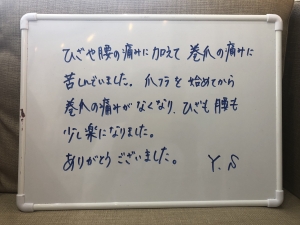 ひざや腰の痛みに加えて 巻爪の痛みに
苦しんでいました。爪フラを始めてから
巻爪の痛みがなくなり、ひざも腰も
少し楽になりました。
ありがとうございました。 Y.S